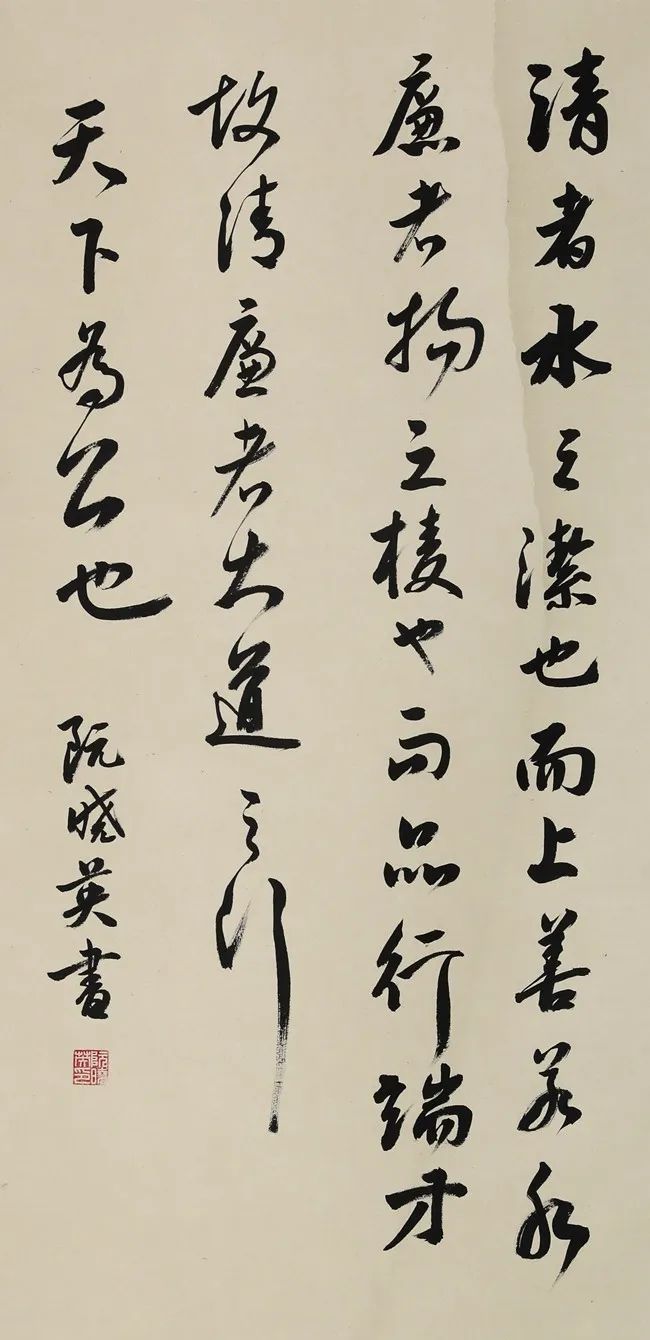 清者水之潔也而上善若水
廉者物之棱也而品行端方
故清廉者大道之行
天下為公也 阮晓英書